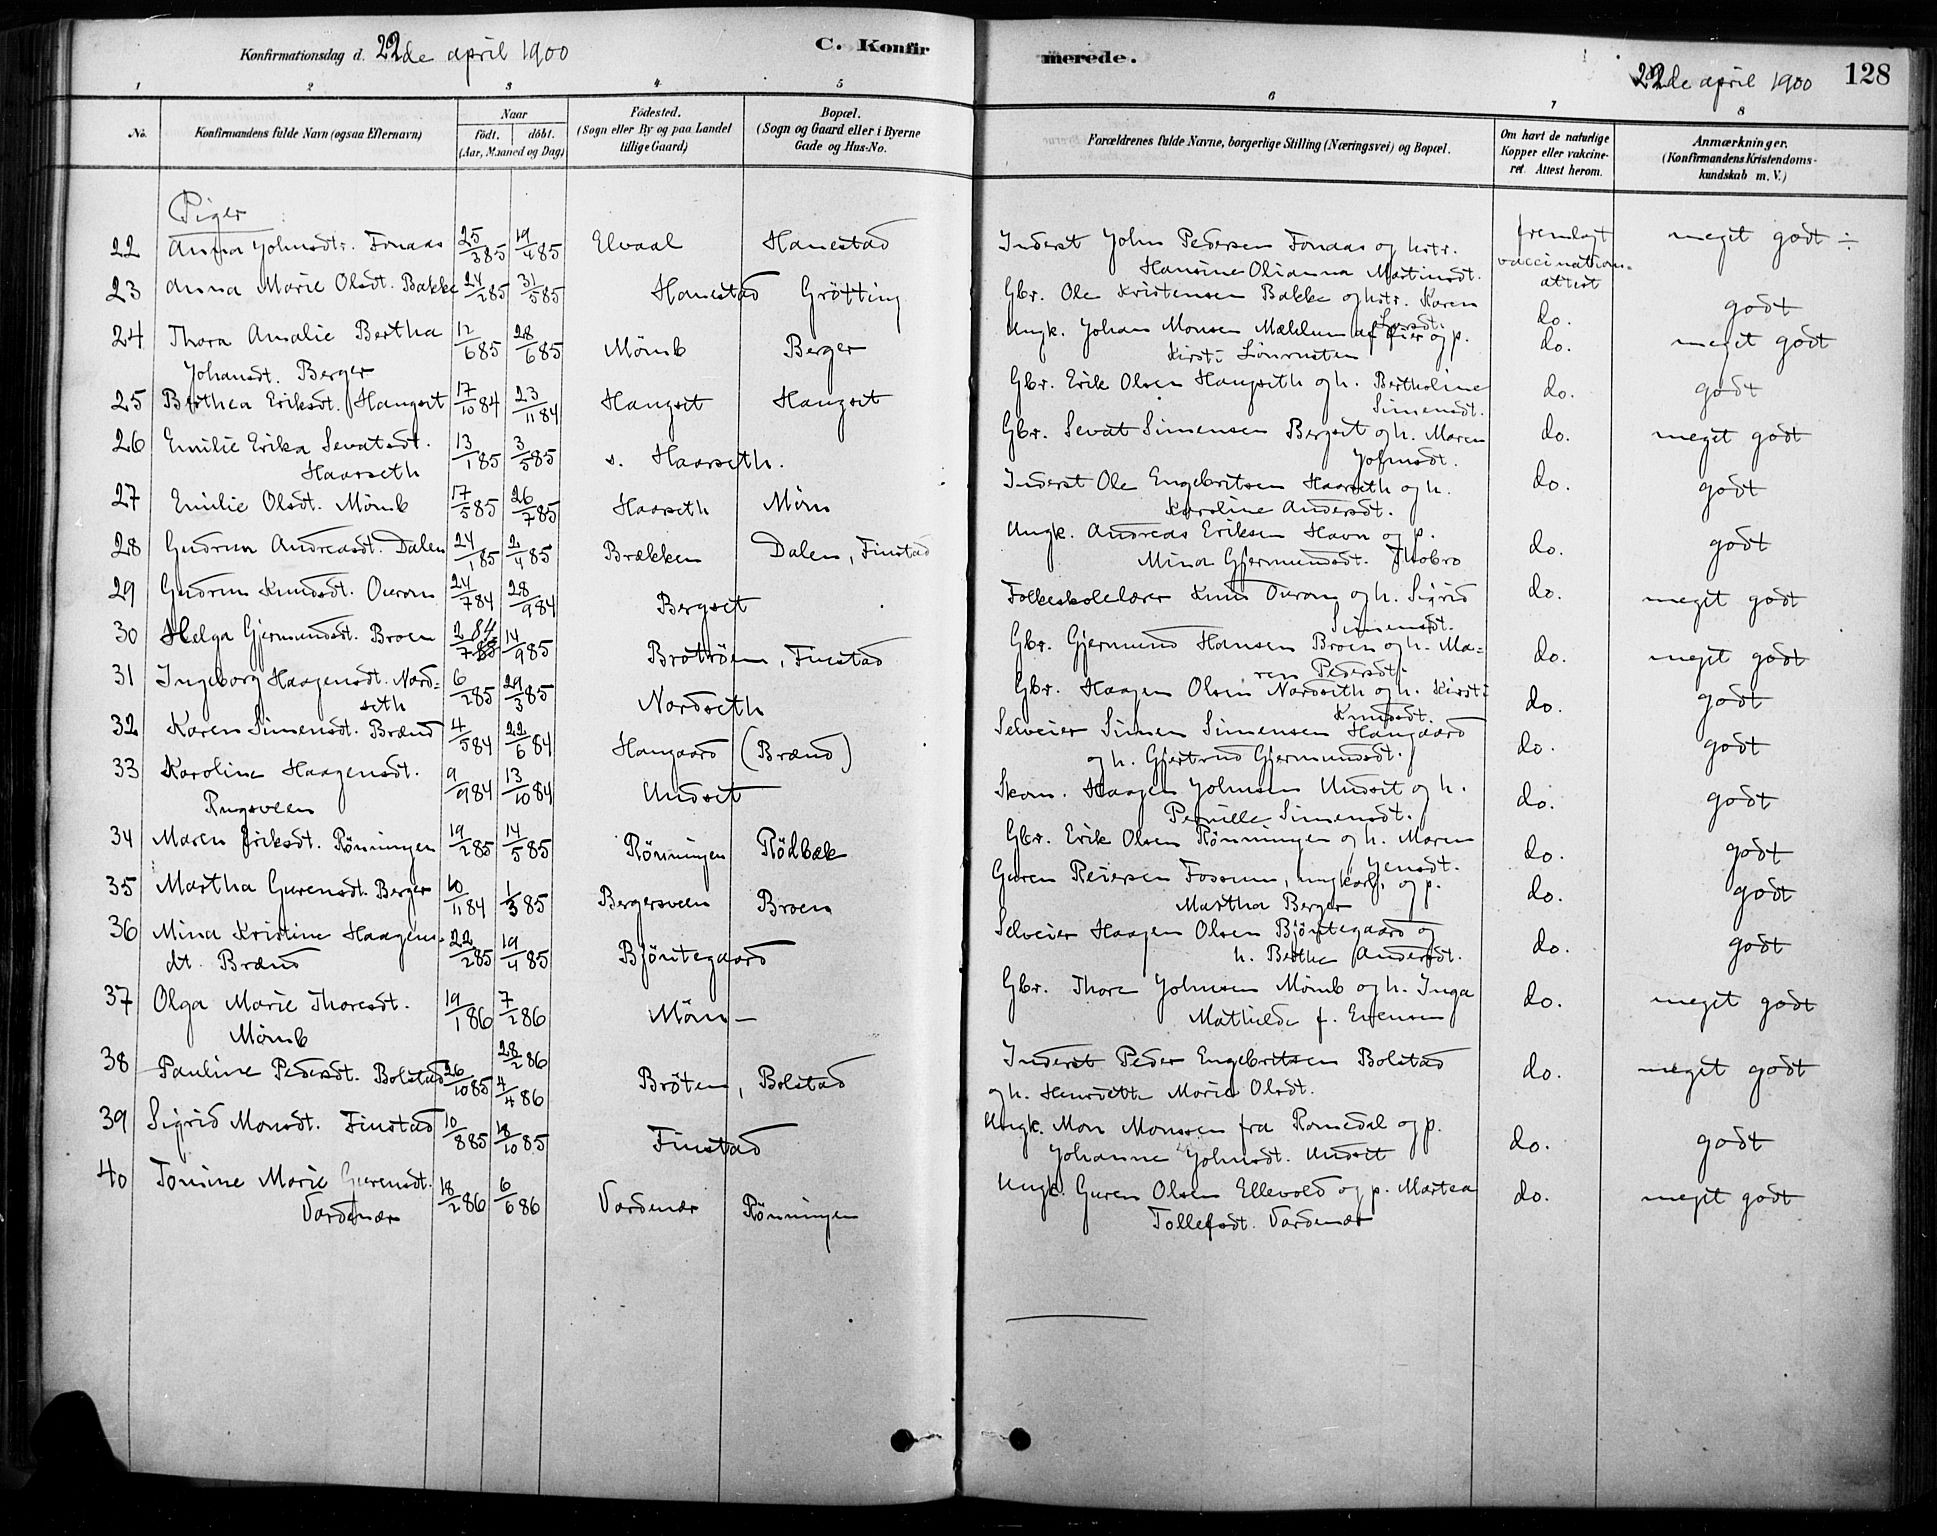 Konfirmationsdag d. 22de april 1900
C. Konfir
merede.
22de april 1900
128
1 2 3 4 5 6 7 8
No.
Konfirmandens fulde Navn (ogsaa Efternavn)
Naar
født. | døbt.
(Aar, Maaned og Dag)
Fødested.
(Sogn eller By og paa Landet
tillige Gaard)
Bopæl.
(Sogn og Gaard eller i Byerne
Gade og Hus-No.
Forældrenes fulde Navne, borgerlige Stilling (Næringsvei) og Bopæl.
Om havt de naturlige
Kopper eller vakcine-
ret. Attest herom.
Anmærkninger.
(Konfirmandens Kristendoms-
kundskab m. V.)
Piger
22 Anna Johnsdtr. Fonaas 25/3 85 19/4 85 Elvaal Hanestad Inderst John Pedersen Fonaas og hstr. fremlagt meget godt ÷
Hansine Olianna Martinsdt. vaccinations-
attest
23 Anna Marie Olsdt. Bakke 24/2 85 31/5 85 Hanestad Grötting Gbr. Ole Kristensen Bakke og hstr. Karen do. godt
Larsdt.
24 Thora Amalie Bertha 12/6 85 28/6 85 Mömb Berger Ungk. Johan Monsen Mæhlum af Eier og p. do. meget godt
Johansdt. Berger Kirsti
25 Berthea Eriksdt. Hangset 17/10 84 23/11 84 Hangset Hangset Gbr. Erik Olsen Hangseth og h. Bertholine do. godt
Simensdt.
26 Emilie Erika Sevatsdt. 13/1 85 3/5 85 s. Haarseth. Gbr. Sevat Simensen Bergset og h. Maren do. meget godt
Haarseth Johnsdt.
27 Emilie Olsdt. Mömb 17/5 85 26/7 85 Haarseth Möm Inderst Ole Engebritsen Haarseth og h. do. godt
Karoline Andersdt.
28 Gudrun Andreasdt. Dalen 24/1 85 2/4 85 Brækken Dalen, Finstad Ungk. Andreas Eriksen Havn og p. do. godt
Mina Gjermundsdt. Thobro
29 Gudrun Knudsdt. Ouron 24/7 84 28/9 84 Bergset Folkeskolelærer Knud Ouron og h. Sigrid do. meget godt
Simensdt.
30 Helga Gjermundsdt. Broen 2/7 84 14/9 85 Brotröen, Finstad Gbr. Gjermund Hansen Broen og h. Ma- do. meget godt
ren Pedersdt.
31 Ingeborg Haagensdt. Nord- 6/2 85 29/3 85 Nordseth Gbr. Haagen Olsen Nordseth og h. Kirsti do. godt
seth Knudsdt.
32 Karen Simensdt. Brænd 4/5 84 22/6 84 Haugaard (Brænd) Selveier Simen Simensen Haugaard do. godt
og h. Gjertrud Gjermundsdt.
33 Karoline Haagensdt. 9/9 84 13/10 84 Undset Skom. Haagen Johnsen Undset og h. do. godt
Rugsveen Pernille Simensdt.
34 Maren Eriksdt. Rönningen 19/2 85 14/5 85 Rönningen Rödbæk Gbr. Erik Olsen Rönningen og h. Maren do. godt
Jensdt.
35 Martha Gurensdt. Berger 10/11 84 1/3 85 Bergersveen Broen Guren Reiersen Fossum, ungkarl, og p. do. godt
Martha Berger
36 Mina Kristine Haagens- 22/2 85 19/4 85 Bjöntegaard Selveier Haagen Olsen Bjöntegaard og do. godt
dt. Brænd h. Berthe Andersdt.
37 Olga Marie Thoresdt. 19/1 86 7/2 86 Möm- Gbr. Thore Johnsen Mömb og h. Inga do. meget godt
Mömb Mathilde f. Evensen
38 Pauline Pedersdt. Bolstad 26/10 85 28/2 86 4/4 86 Bröten, Bolstad Inderst Peder Engebritsen Bolstad do. meget godt
og h. Henriette Marie Olsdt.
39 Sigrid Monsdt. Finstad 10/8 85 18/10 85 Finstad Ungk. Mon Monssen fra Romedal og p. do. godt
Johanne Johnsdt. Undset
40 Tomine Marie Gurensdt. 18/2 86 6/6 86 Vardenær Rönningen Ungk. Guren Olsen Ellevold og p. Martea do. meget godt
Vardenær Tollefsdt. Vardenær